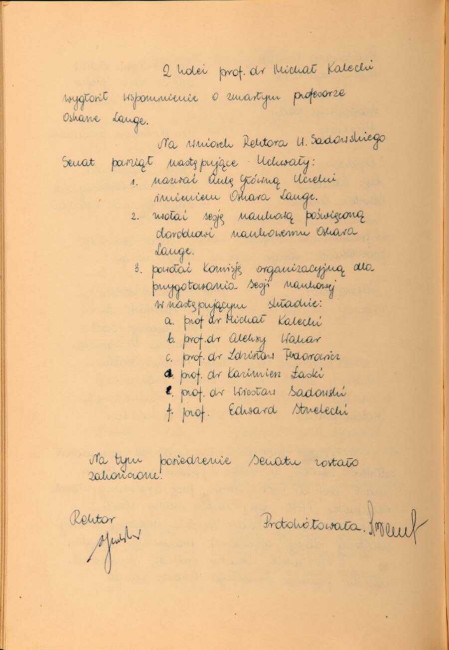 Z kolei prof. dr Michał Kalecki
wygłosił wspomnienie o zmarłym profesorze
Oskarze Lange.
Na wniosek Rektora W. Sadowskiego
Senat powziął następujące Uchwały:
1. nazwać Aulę Główną Uczelni
imieniem Oskara Lange.
2. zwołać sesję naukową poświęconą
dorobkowi naukowemu Oskara
Lange.
3. powołać Komisję organizacyjną dla
przygotowania sesji naukowej
w następującym składzie:
a. prof. dr Michał Kalecki
b. prof. dr Aleksy Wakar
c. prof. dr Zdzisław Fedorowicz
d. prof. dr Kazimierz Łaski
e. prof. dr Wiesław Sadowski
f. prof. Edward Strzelecki
Na tym posiedzenie Senatu zostało
zakończone.
Rektor Protokółowała